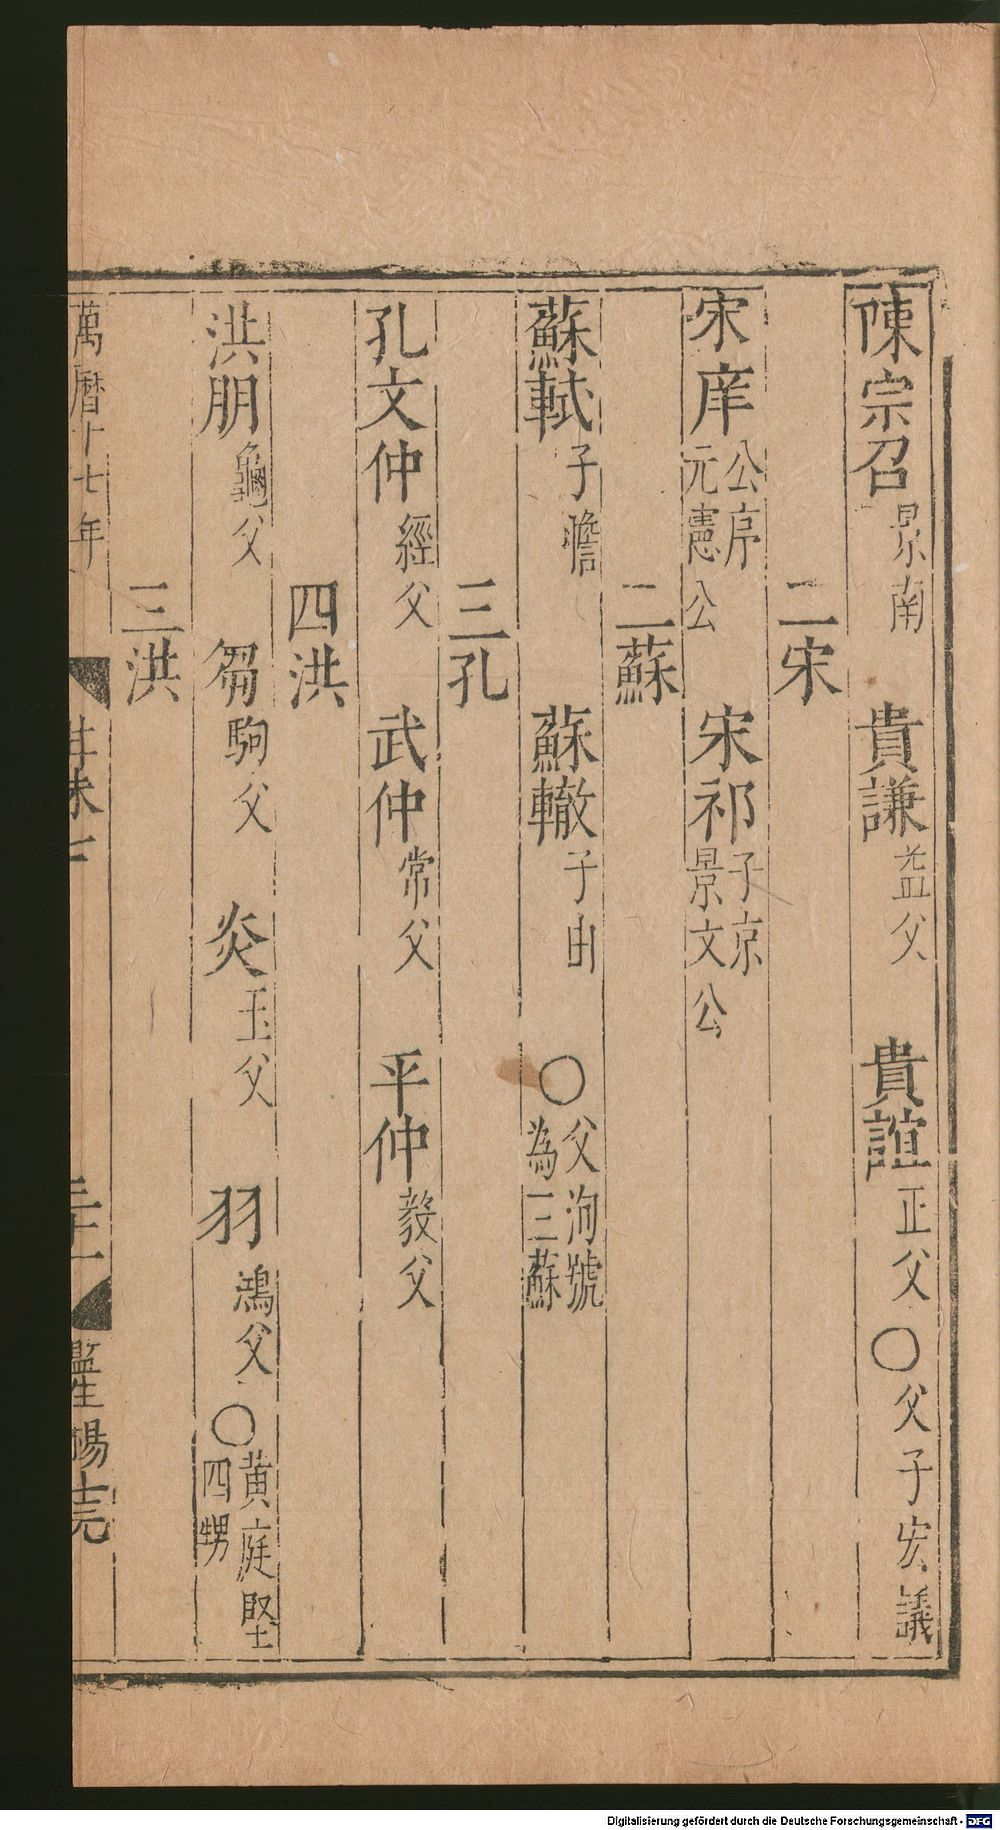 陳宗召景南　貴謙益父　貴誼正父○父子宏議
二宋
宋庠公序元憲公　宋祁子京景文公
二蘇
蘇軾子瞻　蘇轍子由　○父洵號為三蘇
三孔
孔文仲經父　武仲常父　平仲毅父
四洪
洪朋龜父　芻駒父　炎玉父　羽鴻父○黄庭堅四甥
三洪
萬曆十七年　　監生楊士元
Digitalisierung gefördert durch die Deutsche Forschungsgemeinschaft - DFG